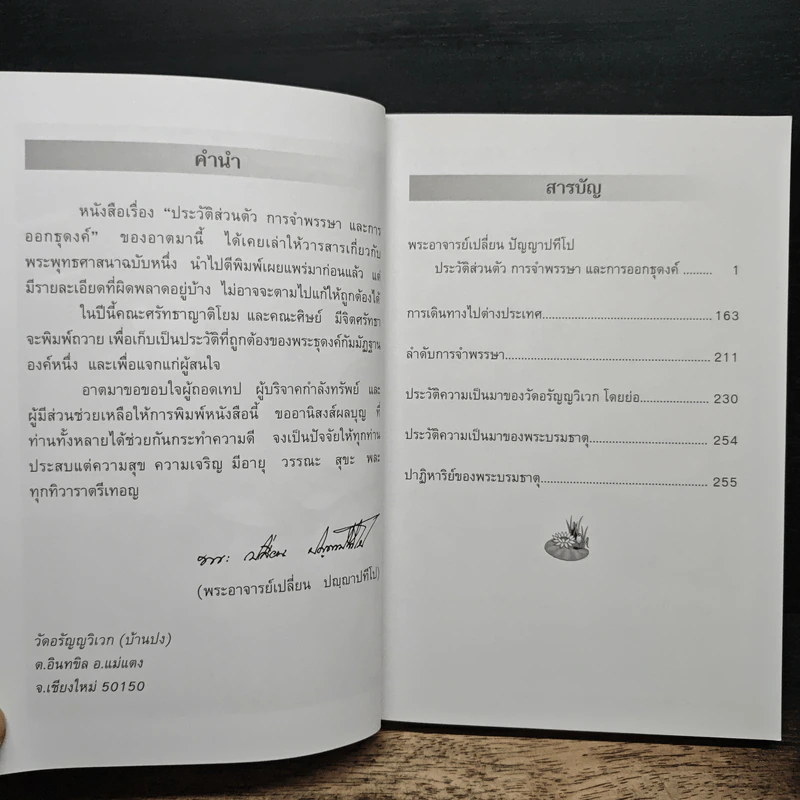 คำนำ
หนังสือเรื่อง “ประวัติส่วนตัว การจำพรรษา และการ
ออกธุดงค์” ของอาตมานี้ ได้เคยเล่าให้วารสารเกี่ยวกับ
พระพุทธศาสนาฉบับหนึ่ง นำไปตีพิมพ์เผยแพร่มาก่อนแล้ว แต่
มีรายละเอียดที่ผิดพลาดอยู่บ้าง ไม่อาจจะตามไปแก้ให้ถูกต้องได้
ในปีนี้คณะศรัทธาญาติโยม และคณะศิษย์ มีจิตศรัทธา
จะพิมพ์ถวาย เพื่อเก็บเป็นประวัติที่ถูกต้องของพระธุดงค์กัมมัฏฐาน
องค์หนึ่ง และเพื่อแจกแก่ผู้สนใจ
อาตมาขอขอบใจผู้ถอดเทป ผู้บริจาคกำลังทรัพย์ และ
ผู้มีส่วนช่วยเหลือให้การพิมพ์หนังสือนี้ ขออานิสงส์ผลบุญ ที่
ท่านทั้งหลายได้ช่วยกันกระทำความดี จงเป็นปัจจัยให้ทุกท่าน
ประสบแต่ความสุข ความเจริญ มีอายุ วรรณะ สุขะ พละ
ทุกทิวาราตรีเทอญ
(พระอาจารย์เปลี่ยน ปญฺญาปทีโป)
วัดอรัญญวิเวก (บ้านปง)
ต.อินทขิล อ.แม่แตง
จ.เชียงใหม่ 50150
สารบัญ
พระอาจารย์เปลี่ยน ปัญญาปทีโป
ประวัติส่วนตัว การจำพรรษา และการออกธุดงค์ ........ 1
การเดินทางไปต่างประเทศ........ 163
ลำดับการจำพรรษา........ 211
ประวัติความเป็นมาของวัดอรัญญวิเวก โดยย่อ........ 230
ประวัติความเป็นมาของพระบรมธาตุ........ 254
ปาฏิหาริย์ของพระบรมธาตุ........ 255